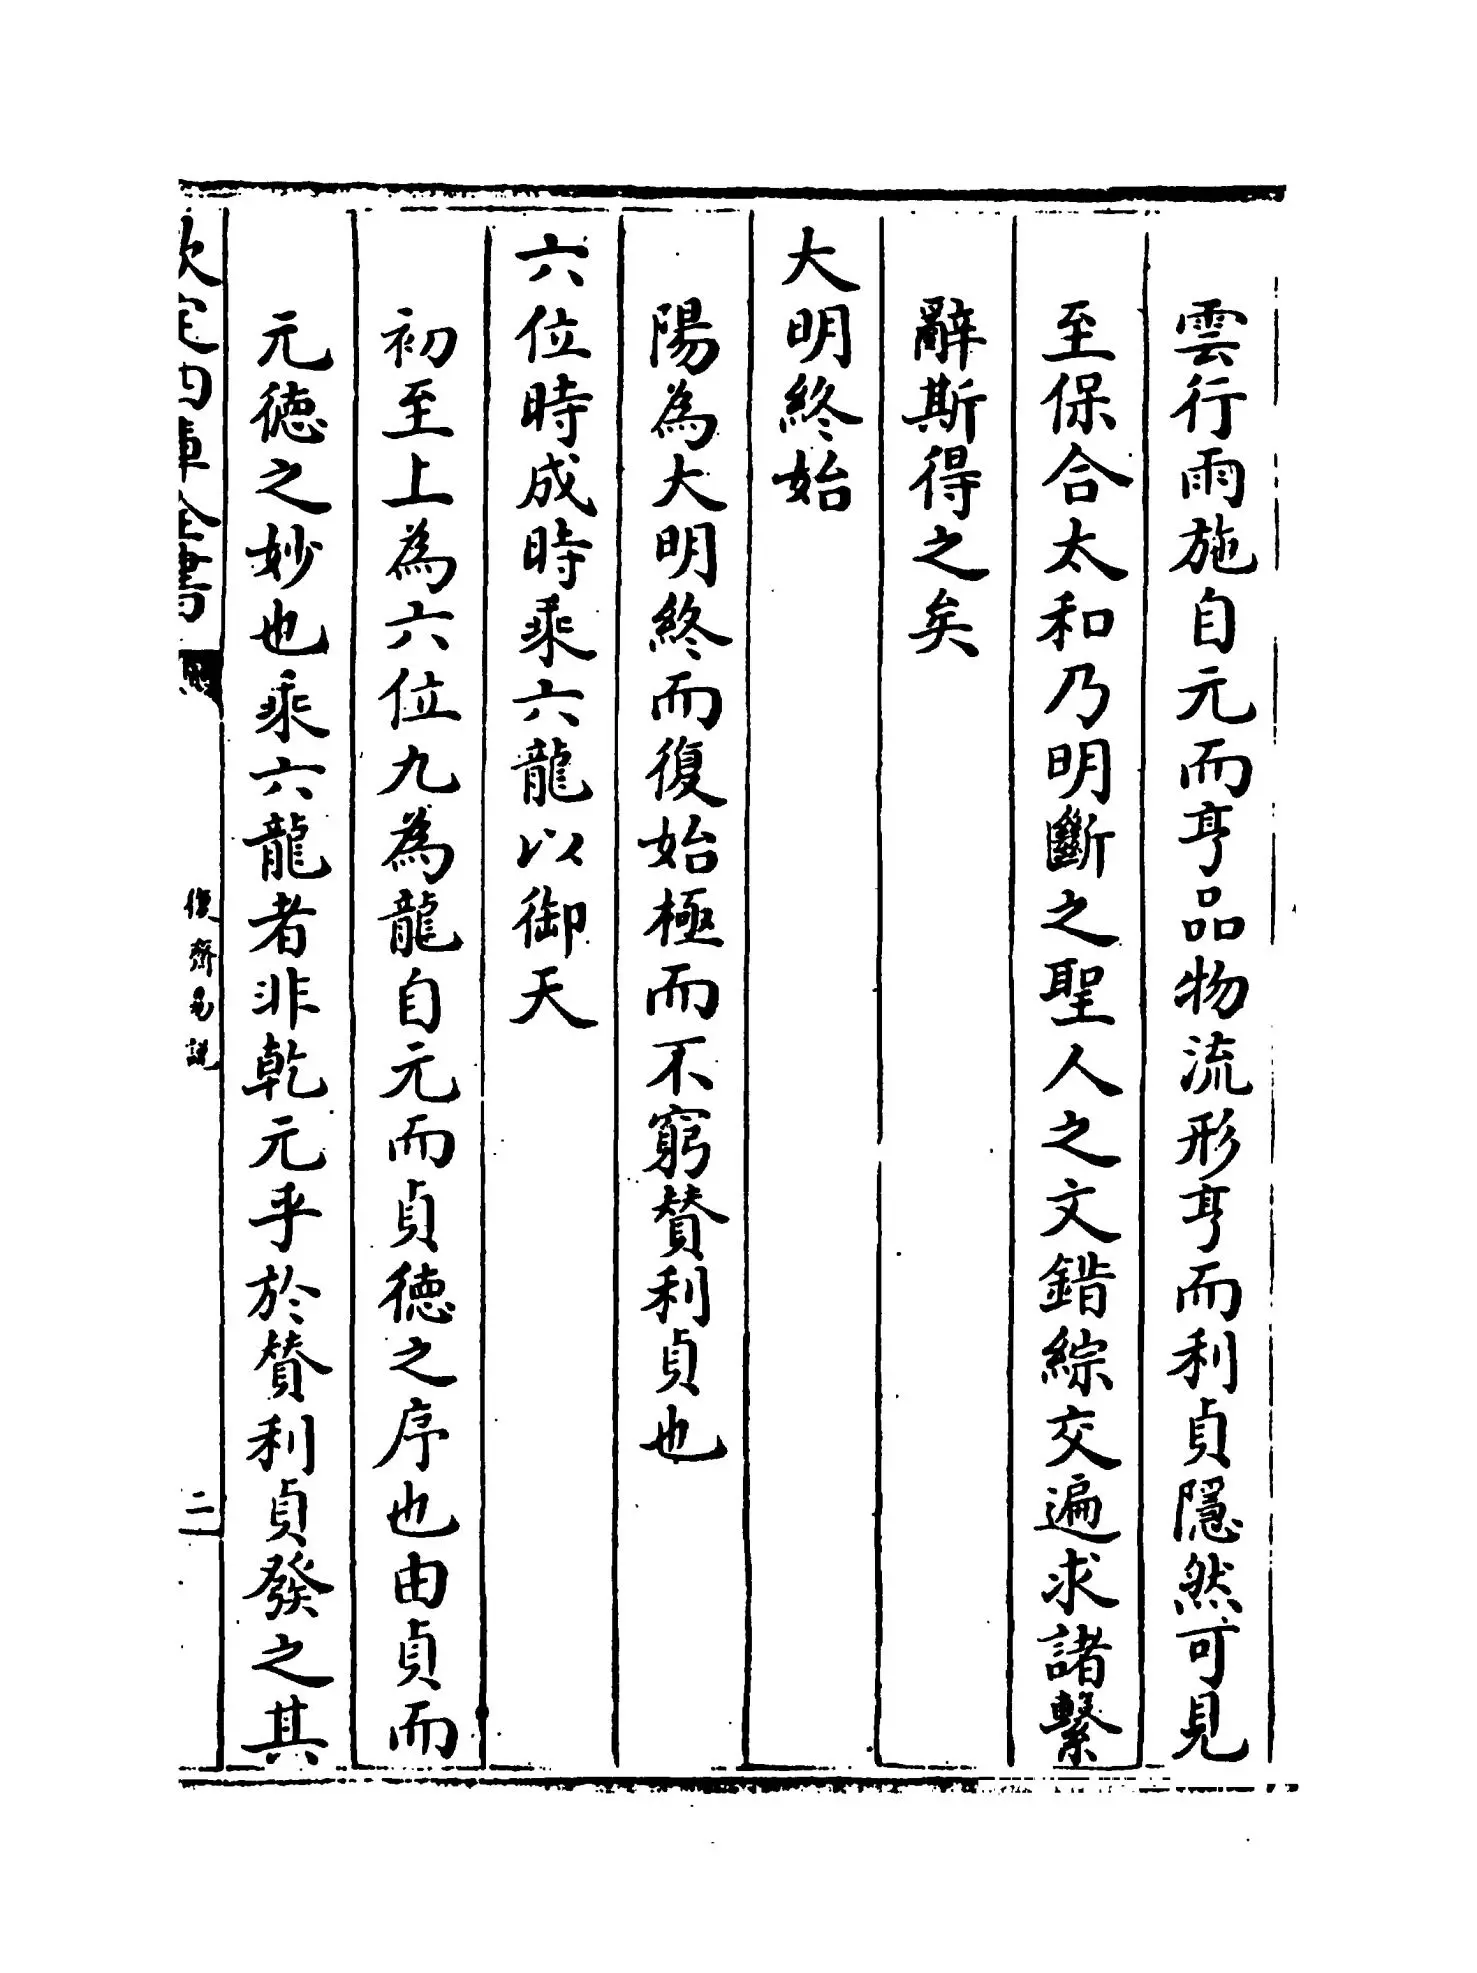 雲行雨施自元而亨品物流形亨而利貞隱然可見
至保合太和乃明斷之聖人之文錯綜交遍求諸繫
辭斯得之矣
大明終始
陽為大明終而復始極而不窮贊利貞也
六位時成時乘六龍以御天
初至上為六位九為龍自元而貞德之序也由貞而
元德之妙也乘六龍者非乾元乎於贊利貞發之其
欽定四庫全書
復齋易說
二